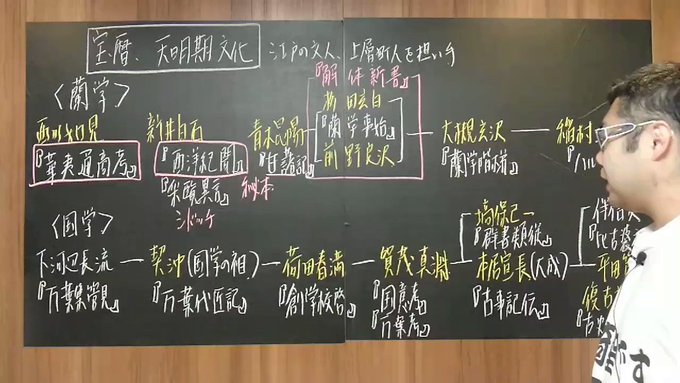 宝暦、天明期文化
江戸の文人、上層町人を担い手
〈蘭学〉
西川如見
『華夷通商考』
新井白石
『西洋紀聞』
『采覧異言』
シドッチ
秘本
青木昆陽
『甘藷記』
『解体新書』
杉田玄白
『蘭学事始』
前野良沢
大槻玄沢
『蘭学階梯』
稲村
『ハル
〈国学〉
下河辺長流
『万葉集管見』
契沖(国学の祖)
『万葉代匠記』
荷田春満
『創学校啓』
賀茂真淵
『国意考』
『万葉考』
塙保己一
『群書類従』
本居宣長(大成)
『古事記伝』
伴信友
『比古
平田篤
復古
『古史